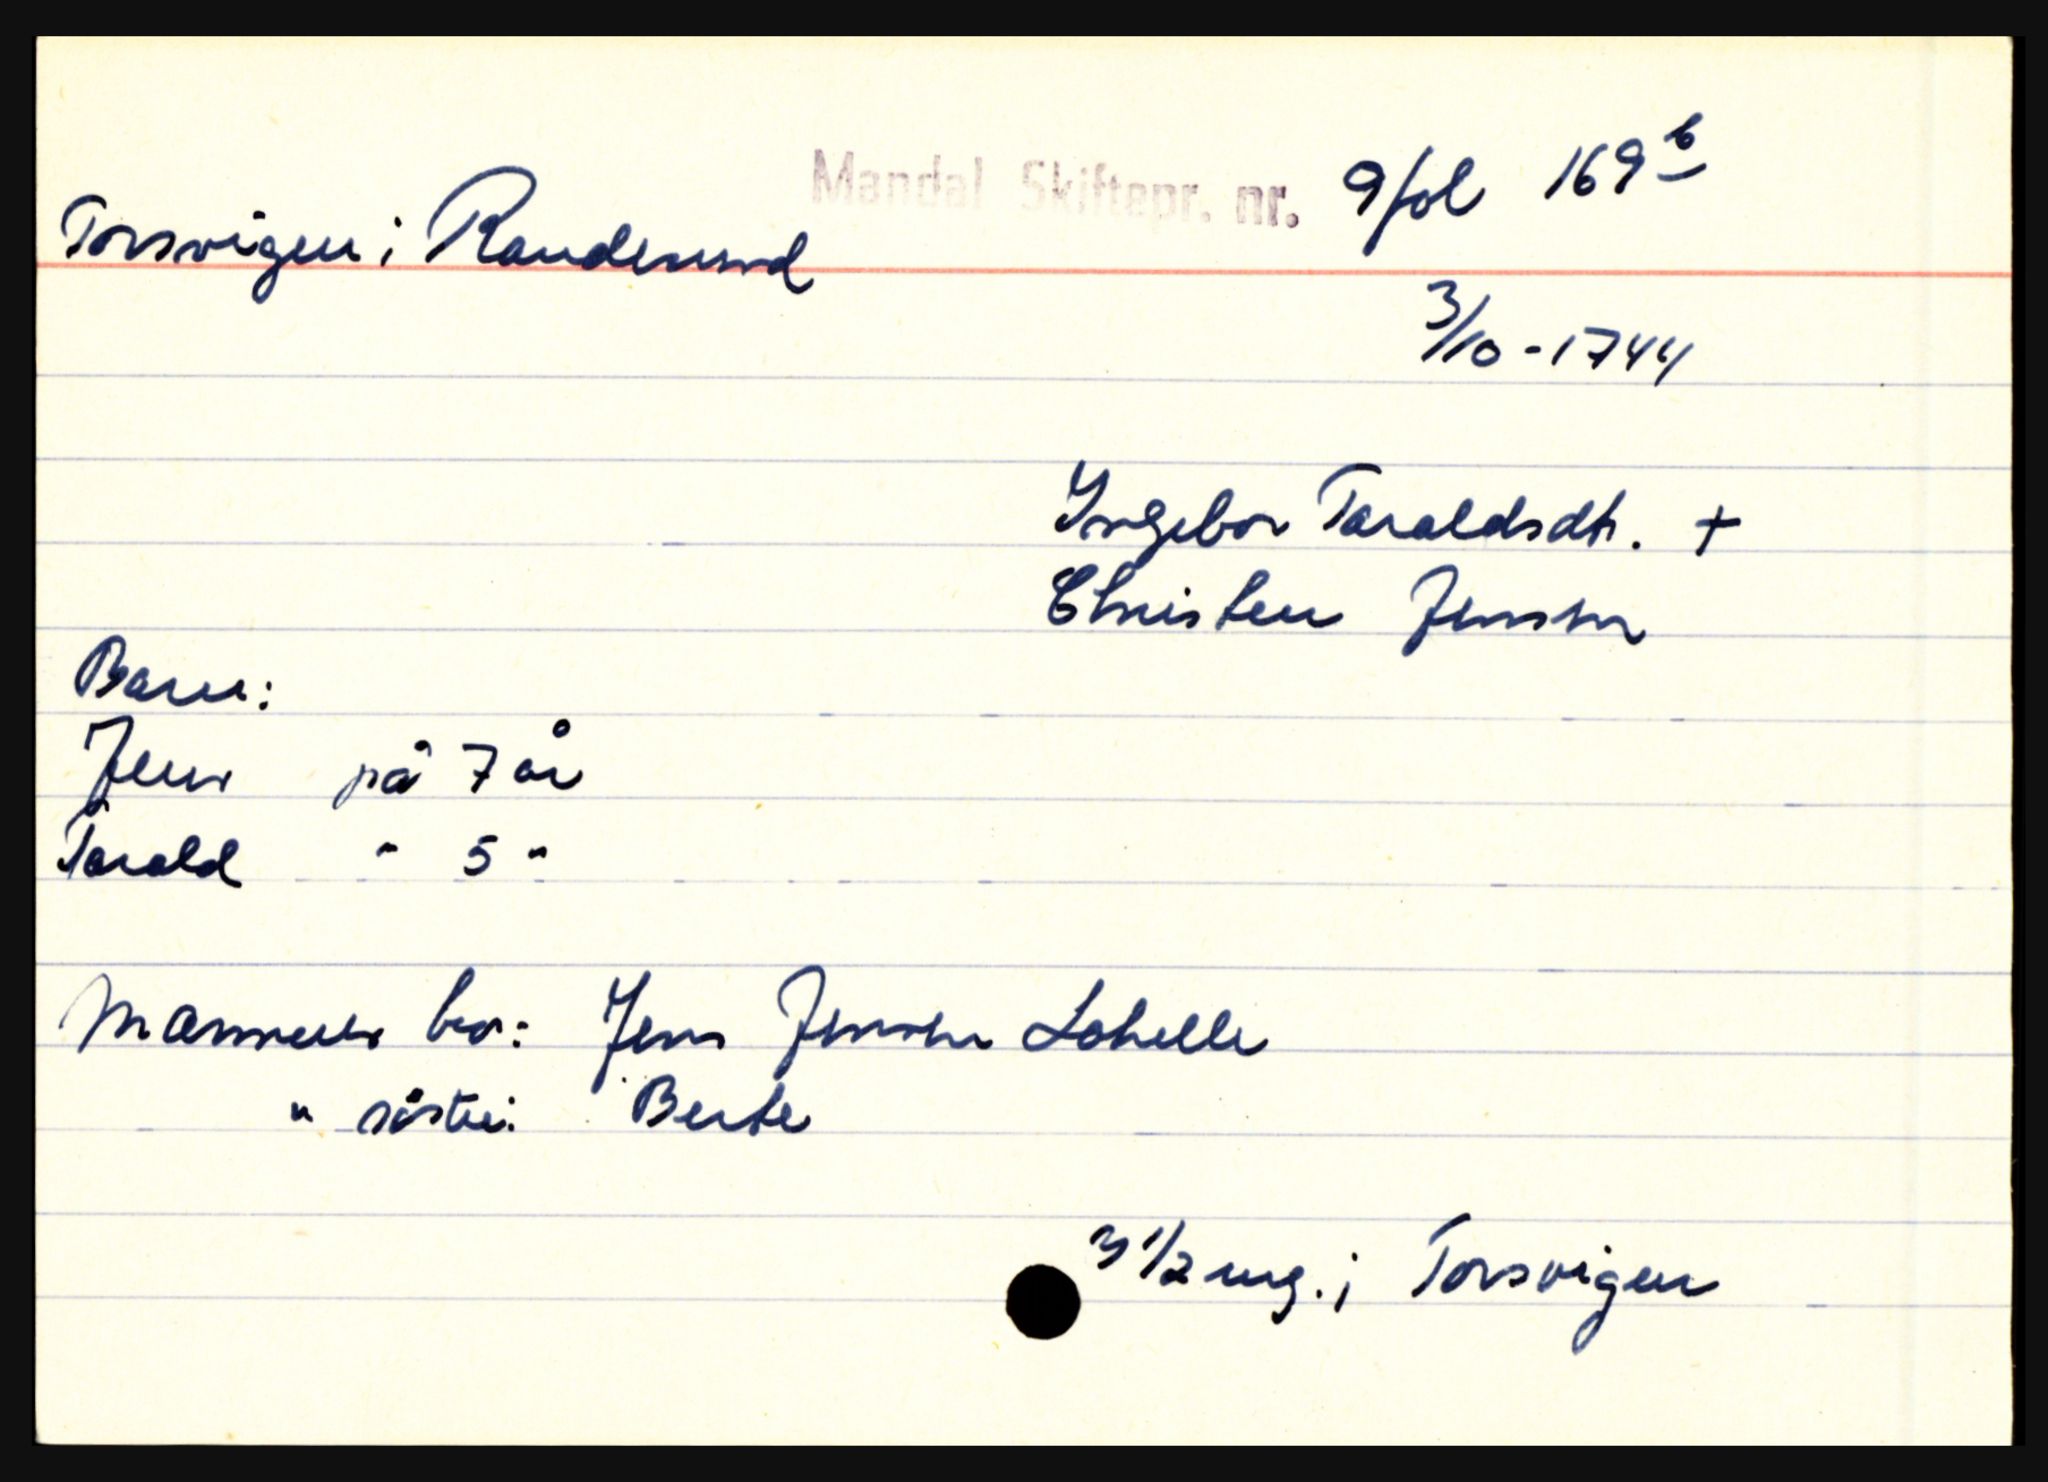 Mandal Skiftepr. nr. 9 fol 169 b
Torsvigen i Randesund
3/10 - 1744
Ingebor Taraldsdtr. +
Christen Jensen
Barn:
Jens på 7 år
Tarald " 5 "
Mannens bror: Jens Jensen Lohelle
" søster: Berte
3 1/2 mg. i Torsvigen